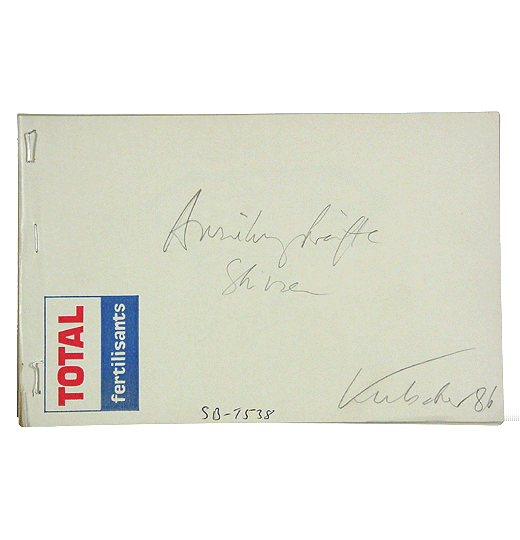 Anziehungskräfte
Skizzen
TOTAL
fertilisants
SB-1538
Kubscher 86